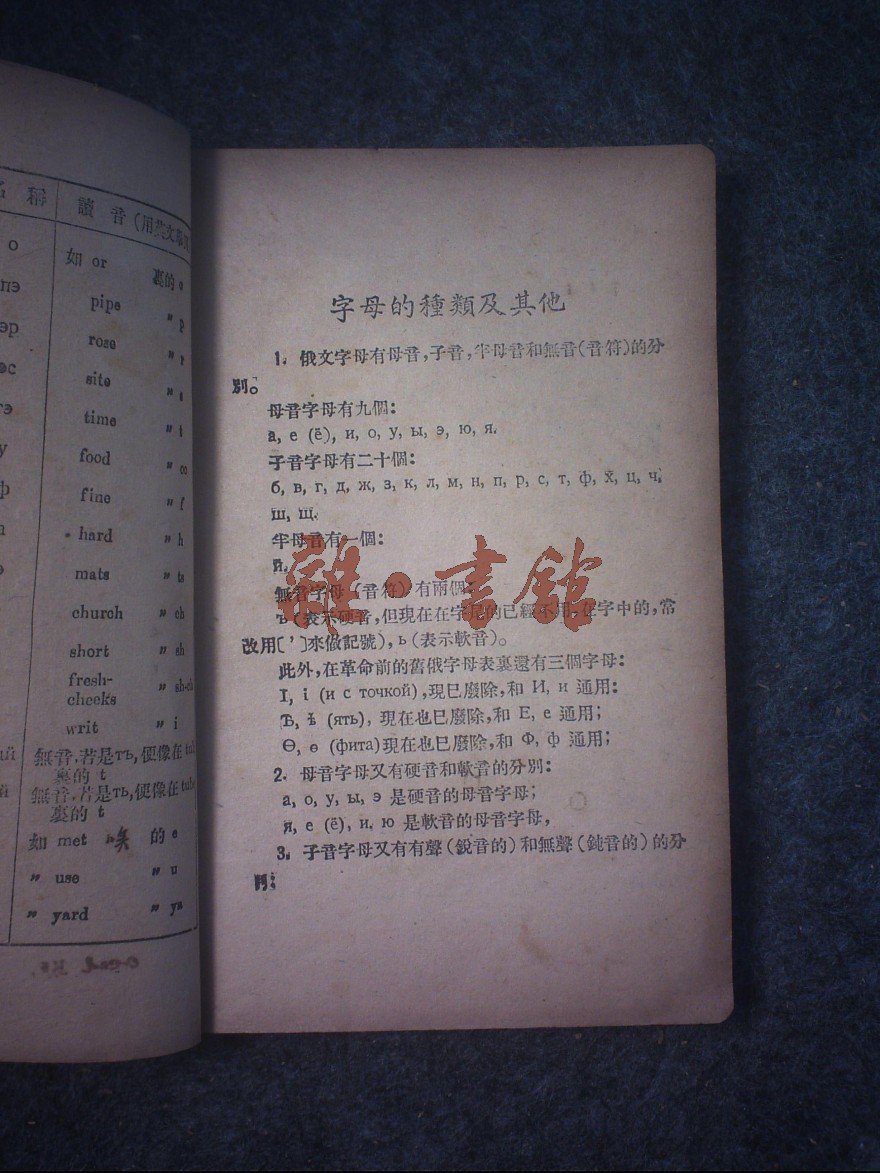 名稱 讀音(用英文
о 如 or 裏的 o
пэ pipe 〃 p
эр rose 〃 r
эс site 〃 s
тэ time 〃 t
у food 〃 oo
ф fine 〃 f
hard 〃 h
mats 〃 ts
church 〃 ch
short 〃 sh
fresh-
cheeks 〃 sh-ch
writ 〃 i
無音.若是тъ,便像在tub
裏的 t
無音.若是ть,便像在tube
裏的 t
如 met 的 e
〃 use 〃 u
〃 yard 〃 ya
字母的種類及其他
1. 俄文字母有母音,子音,半母音和無音(音符)的分
別。
母音字母有九個:
а, е (ё), и, о, у, ы, э, ю, я.
子音字母有二十個:
б, в, г, д, ж, з, к, л, м, н, п, р, с, т, ф, х, ц, ч,
ш, щ.
半母音有一個:
й.
無音字母(音符)有兩個:
ъ(表示硬音,但現在在字尾的已經不用,在字中的,常
改用[']來做記號),ь(表示軟音)。
此外,在革命前的舊俄字母表裏還有三個字母:
І, і (и с точкой),現已廢除,和 И, и 通用;
Ѣ, ѣ (ять), 現在也已廢除,和 Е, е 通用;
Ѳ, ѳ (фита)現在也已廢除,和 Ф, ф 通用;
2. 母音字母又有硬音和軟音的分別:
а, о, у, ы, э 是硬音的母音字母;
я, е (ё), и, ю 是軟音的母音字母,
3. 子音字母又有有聲(銳音的)和無聲(鈍音的)的分
別:
雜·書館